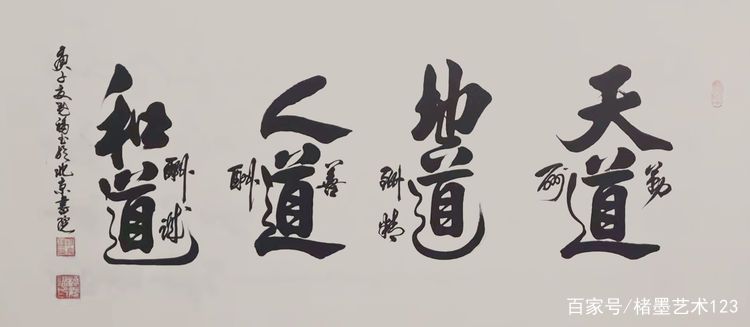 天道酬勤
地道酬精
人道酬善
和道酬诚
庚子夏书於北京
百家号/楮墨艺术123